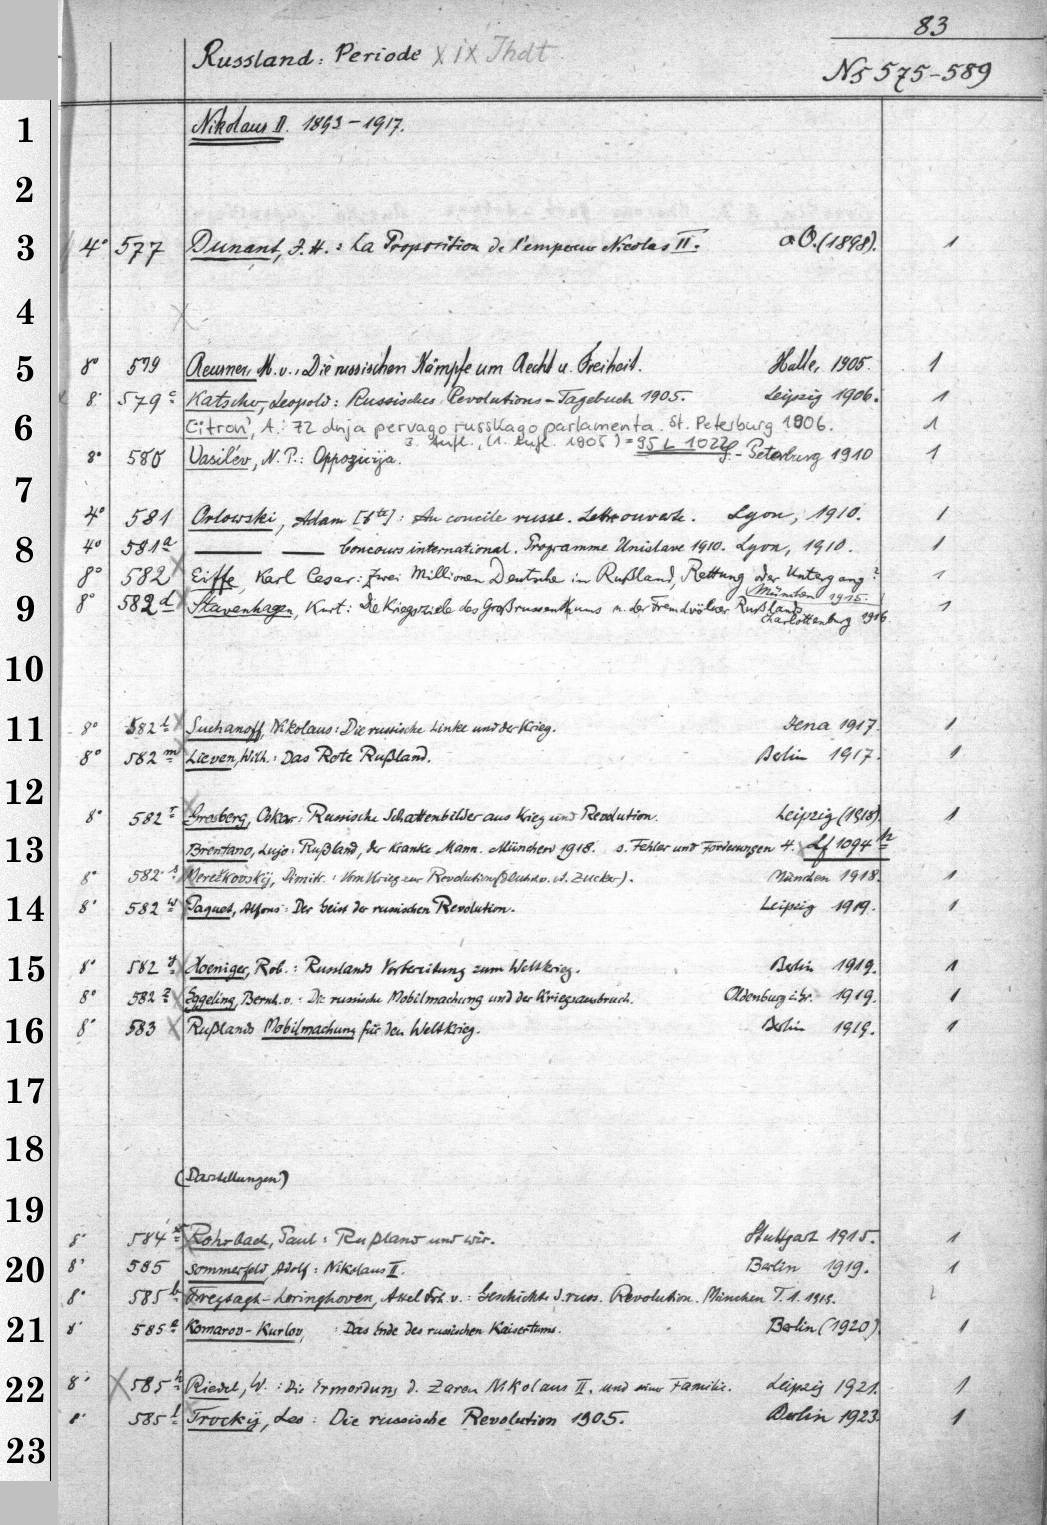 83
Russland: Periode XIX Jhdt
N5 575-589
1 Nikolaus II. 1893-1917.
2
3 4° 577 Dunant, J. H.: La Proposition de l'empereur Nicolas II. o. O. (1898). 1
4
5 8° 579 Reusner, M. v.: Die russischen Kämpfe um Recht u. Freiheit. Halle, 1905. 1
8° 579 c Katscher, Leopold: Russisches Revolutions-Tagebuch 1905. Leipzig 1906. 1
6 Citron', A.: 72 dnja pervago russkago parlamenta. St. Peterburg 1906. 1
3. Aufl., (1. Aufl. 1905) = 95 L 1022
8° 580 Vasilév, N. P.: Oppozicija. S.-Peterburg 1910 1
7
4° 581 Orlowski, Adam [bte]: Au concile russe. Lettre ouverte. Lyon, 1910. 1
8 4° 581 a — — Concours international. Programme Unislave 1910. Lyon, 1910. 1
8° 582 Eiffe, Karl Cesar: Zwei Millionen Deutsche in Rußland, Rettung oder Untergang? 1
München 1915.
9 8° 582 d Stavenhagen, Kurt: Die Kriegsziele des Großrussenthums u. der Fremdvölker Rußlands 1
Charlottenburg 1916
10
11 8° 582 l Suchanoff, Nikolaus: Die russische Linke und der Krieg. Jena 1917. 1
8° 582 m Lieven, Wilh.: Das Rote Rußland. Berlin 1917. 1
12
8° 582 r Grosberg, Oskar: Russische Schattenbilder aus Krieg und Revolution. Leipzig (1918). 1
13 Brentano, Lujo: Rußland, der kranke Mann. München 1918. s. Fehler und Forderungen H. Lf 1094
8° 582 Merežkovskij, Dimitr.: Vom Krieg zur Revolution München 1918. 1
14 8° 582 w Paquet, Alfons: Der Geist der russischen Revolution. Leipzig 1919. 1
15 8° 582 y Hoeniger, Rob.: Russlands Vorbereitung zum Weltkrieg. Berlin 1919. 1
8° 582 z Eggeling, Bernh. v.: Die russische Mobilmachung und der Kriegsausbruch. Oldenburg i. Gr. 1919. 1
16 8° 583 Rußlands Mobilmachung für den Weltkrieg. Berlin 1919. 1
17
18
(Darstellungen)
19
8° 584 Rohrbach, Paul: Rußland und wir. Stuttgart 1915. 1
20 8° 585 Sommerfeld, Adolf: Nikolaus II. Berlin 1919. 1
8° 585 b Freytagh-Loringhoven, Axel Frh. v.: Geschichte d. russ. Revolution. München T. 1. 1919.
21 8° 585 e Komarov-Kurlov, : Das Ende des russischen Kaisertums. Berlin (1920). 1
22 8° 585 h Riedel, W.: Die Ermordung d. Zaren Nikolaus II. und seiner Familie. Leipzig 1921. 1
8° 585 l Trockij, Leo: Die russische Revolution 1905. Berlin 1923. 1
23